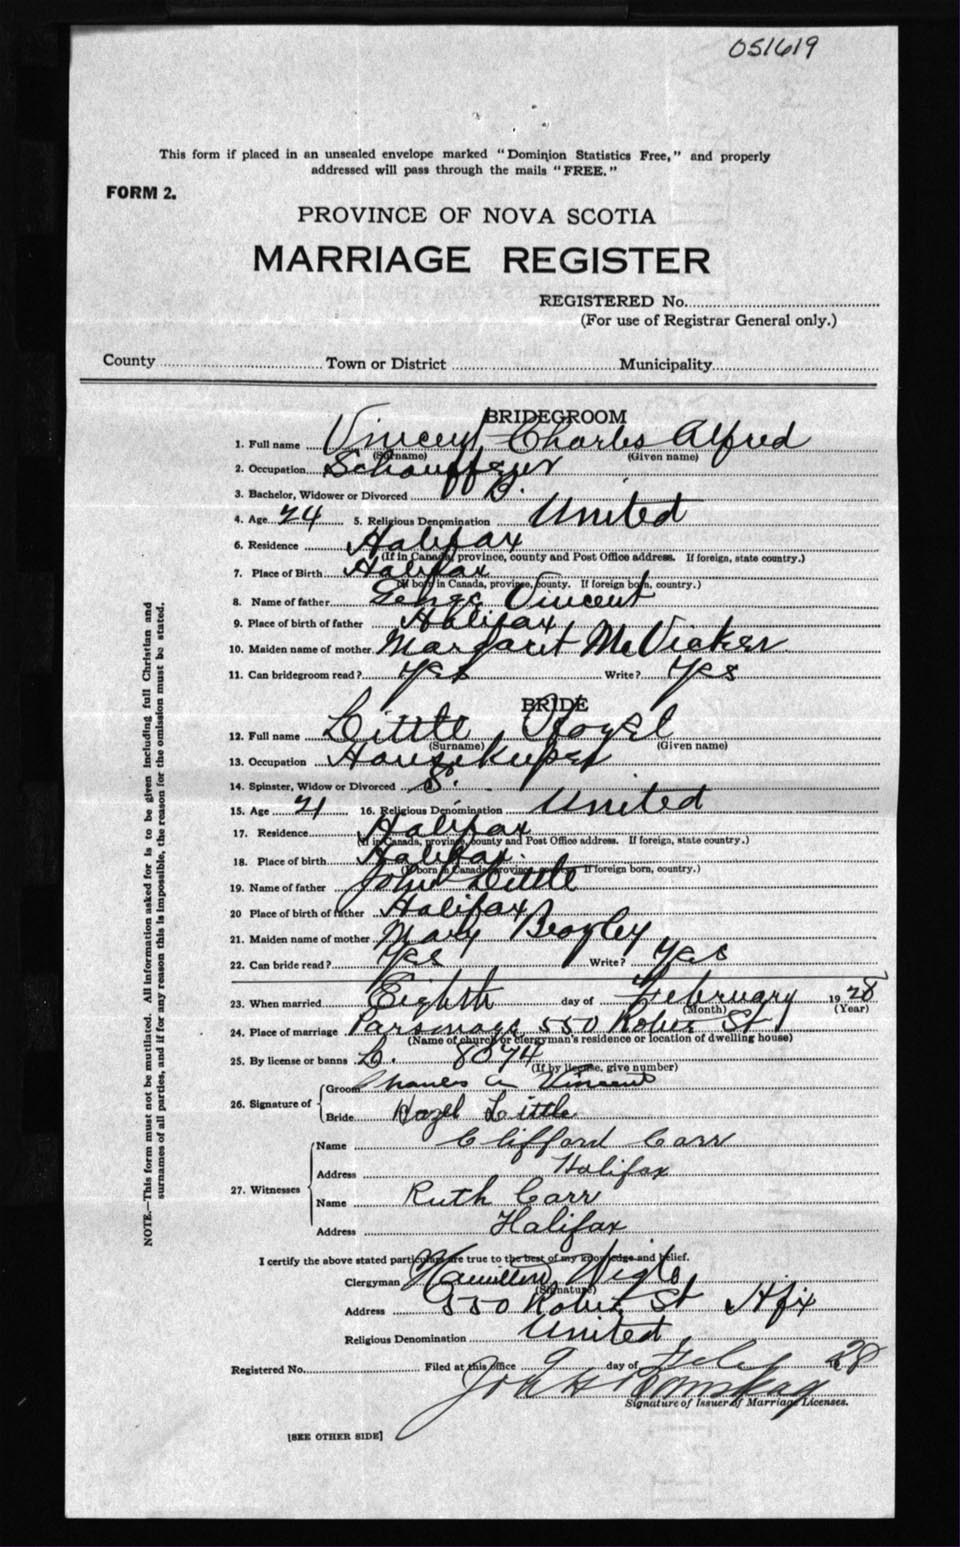 051619
This form if placed in an unsealed envelope marked "Dominion Statistics Free," and properly
addressed will pass through the mails "FREE."
FORM 2.
PROVINCE OF NOVA SCOTIA
MARRIAGE REGISTER
REGISTERED No.
(For use of Registrar General only.)
County Town or District Municipality
BRIDEGROOM
1. Full name Vincent Charles Alfred
(Surname) (Given name)
2. Occupation
3. Bachelor, Widower or Divorced B.
4. Age 24 5. Religious Denomination United
6. Residence Halifax
(If in Canada, province, county and Post Office address. If foreign, state country.)
7. Place of Birth Halifax
(If born in Canada, province, county. If foreign born, country.)
8. Name of father Vincent
9. Place of birth of father Halifax
10. Maiden name of mother Margaret McVicker
11. Can bridegroom read? Yes Write? Yes
BRIDE
12. Full name Little Hazel
(Surname) (Given name)
13. Occupation Housekeeper
14. Spinster, Widow or Divorced S.
15. Age 21 16. Religious Denomination United
17. Residence Halifax
(If in Canada, province, county and Post Office address. If foreign, state country.)
18. Place of birth Halifax.
(If born in Canada, province, county. If foreign born, country.)
19. Name of father John Little
20 Place of birth of father Halifax
21. Maiden name of mother Mary Beazley
22. Can bride read? Yes Write? Yes
23. When married Eighth day of February 1928
(Month) (Year)
24. Place of marriage Parsonage 550 Robie St
(Name of church or clergyman's residence or location of dwelling house)
25. By license or banns L. 8074
(If by license, give number)
26. Signature of Groom Charles A Vincent
Bride Hazel Little
27. Witnesses Name Clifford Carr
Address Halifax
Name Ruth Carr
Address Halifax
I certify the above stated particulars are true to the best of my knowledge and belief.
Clergyman Hamilton Wigle
(Signature)
Address 550 Robie St Hfx
Religious Denomination United
Registered No. Filed at this office 9 day of Feb 1928
Signature of Issuer of Marriage Licenses.
[SEE OTHER SIDE]
NOTE.—This form must not be mutilated. All information asked for is to be given including full Christian and
surnames of all parties, and if for any reason this is impossible, the reason for the omission must be stated.